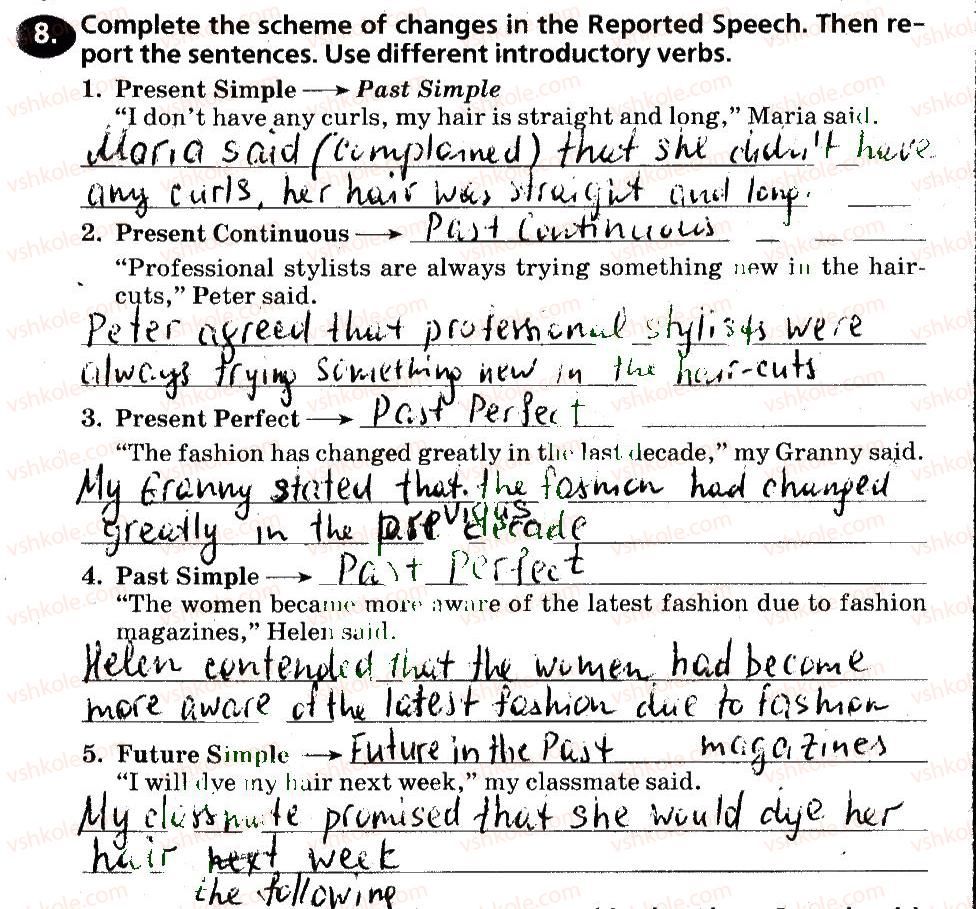 8. Complete the scheme of changes in the Reported Speech. Then re-
port the sentences. Use different introductory verbs.
1. Present Simple → Past Simple
“I don’t have any curls, my hair is straight and long,” Maria said.
Maria said (complained) that she didn't have
any curls, her hair was straight and long.
2. Present Continuous → Past Continuous
“Professional stylists are always trying something new in the hair-
cuts,” Peter said.
Peter agreed that professional stylists were
always trying something new in the hair-cuts
3. Present Perfect → Past Perfect
“The fashion has changed greatly in the last decade,” my Granny said.
My Granny stated that the fashion had changed
greatly in the previous decade
4. Past Simple → Past Perfect
“The women became more aware of the latest fashion due to fashion
magazines,” Helen said.
Helen contended that the women had become
more aware of the latest fashion due to fashion
magazines
5. Future Simple → Future in the Past
“I will dye my hair next week,” my classmate said.
My classmate promised that she would dye her
hair next week
the following